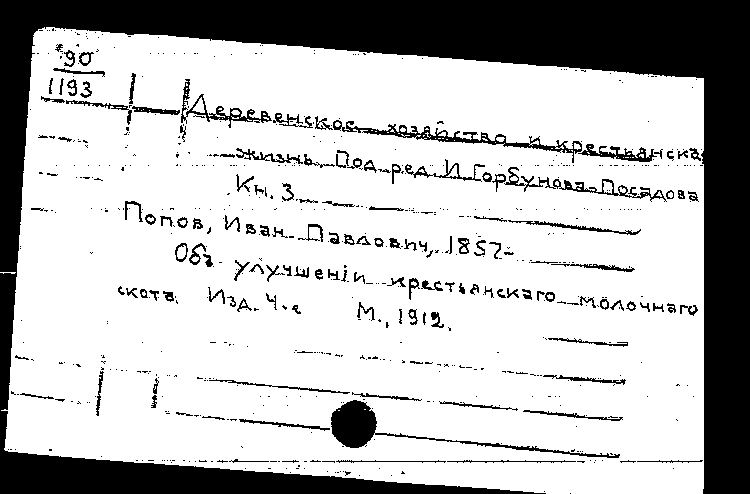 90
1193
Деревенское хозяйство и крестьянская
жизнь Под ред. И. Горбунова-Посадова
Кн. 3
Попов, Иван Павлович, 1857-
Объ улучшенiи крестьянскаго молочнаго
скота. Изд. 4-е М., 1912.